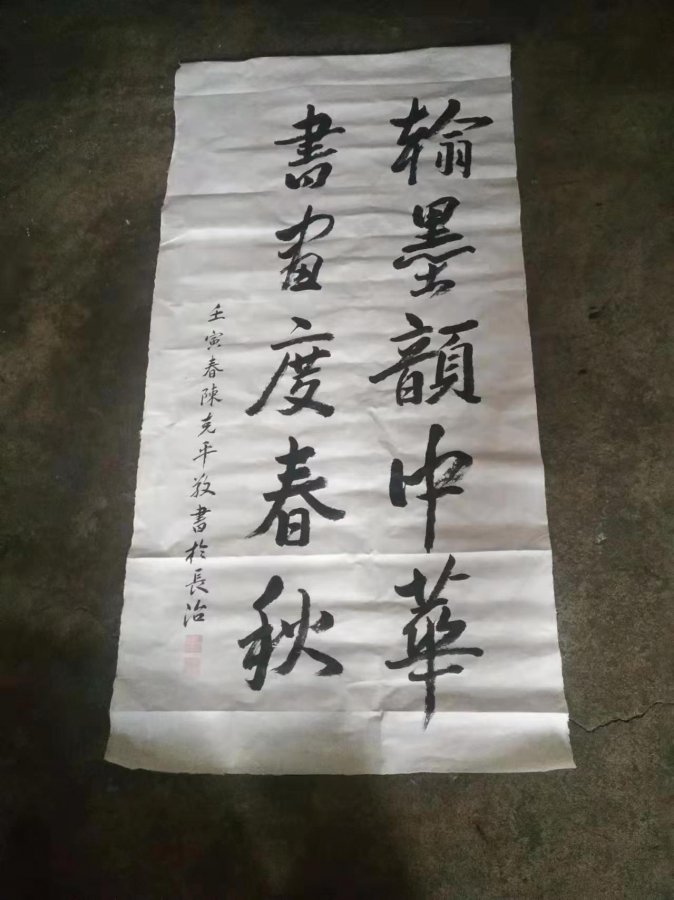 翰墨韻中華
書畫度春秋
壬寅春陳克平敬書於長治